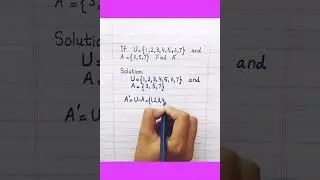 If U={1,2,3,4,5,6,7} and
A={3,5,7} Find A'.
Solution:
U={1,2,3,4,5,6,7} and
A={3,5,7}
A'=U-A={1,2,3,4,